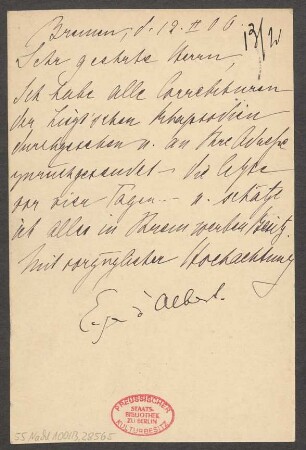 Bremen, d. 12 II 06.
13/II
Sehr geehrte Herrn,
Ich habe alle Correkturen
der Liszt'schen Rhapsodien
durchgesehen u. an Ihre Adresse
zurückgesendet – die letzte
vor vier Tagen – u. schätze
ist alles in Ihrem werthen Besitz.
Mit vorzüglicher Hochachtung
Eugen d'Albert.
PREUSSISCHER
STAATS-
BIBLIOTHEK
ZU BERLIN
KULTURBESITZ
55 Nachl 100/B, 28565